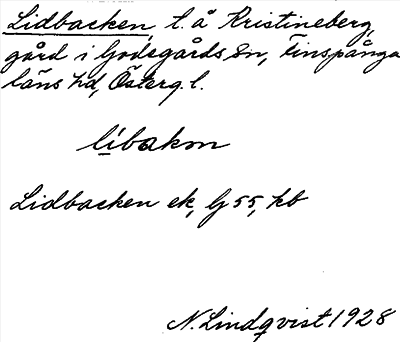 Lidbacken, t. å Kristineberg,
gård i Godegårds sn, Finspånga
läns hd, Österg. l.
líbakɷn
Lidbacken ek, G 55, kb
N. Lindqvist 1928